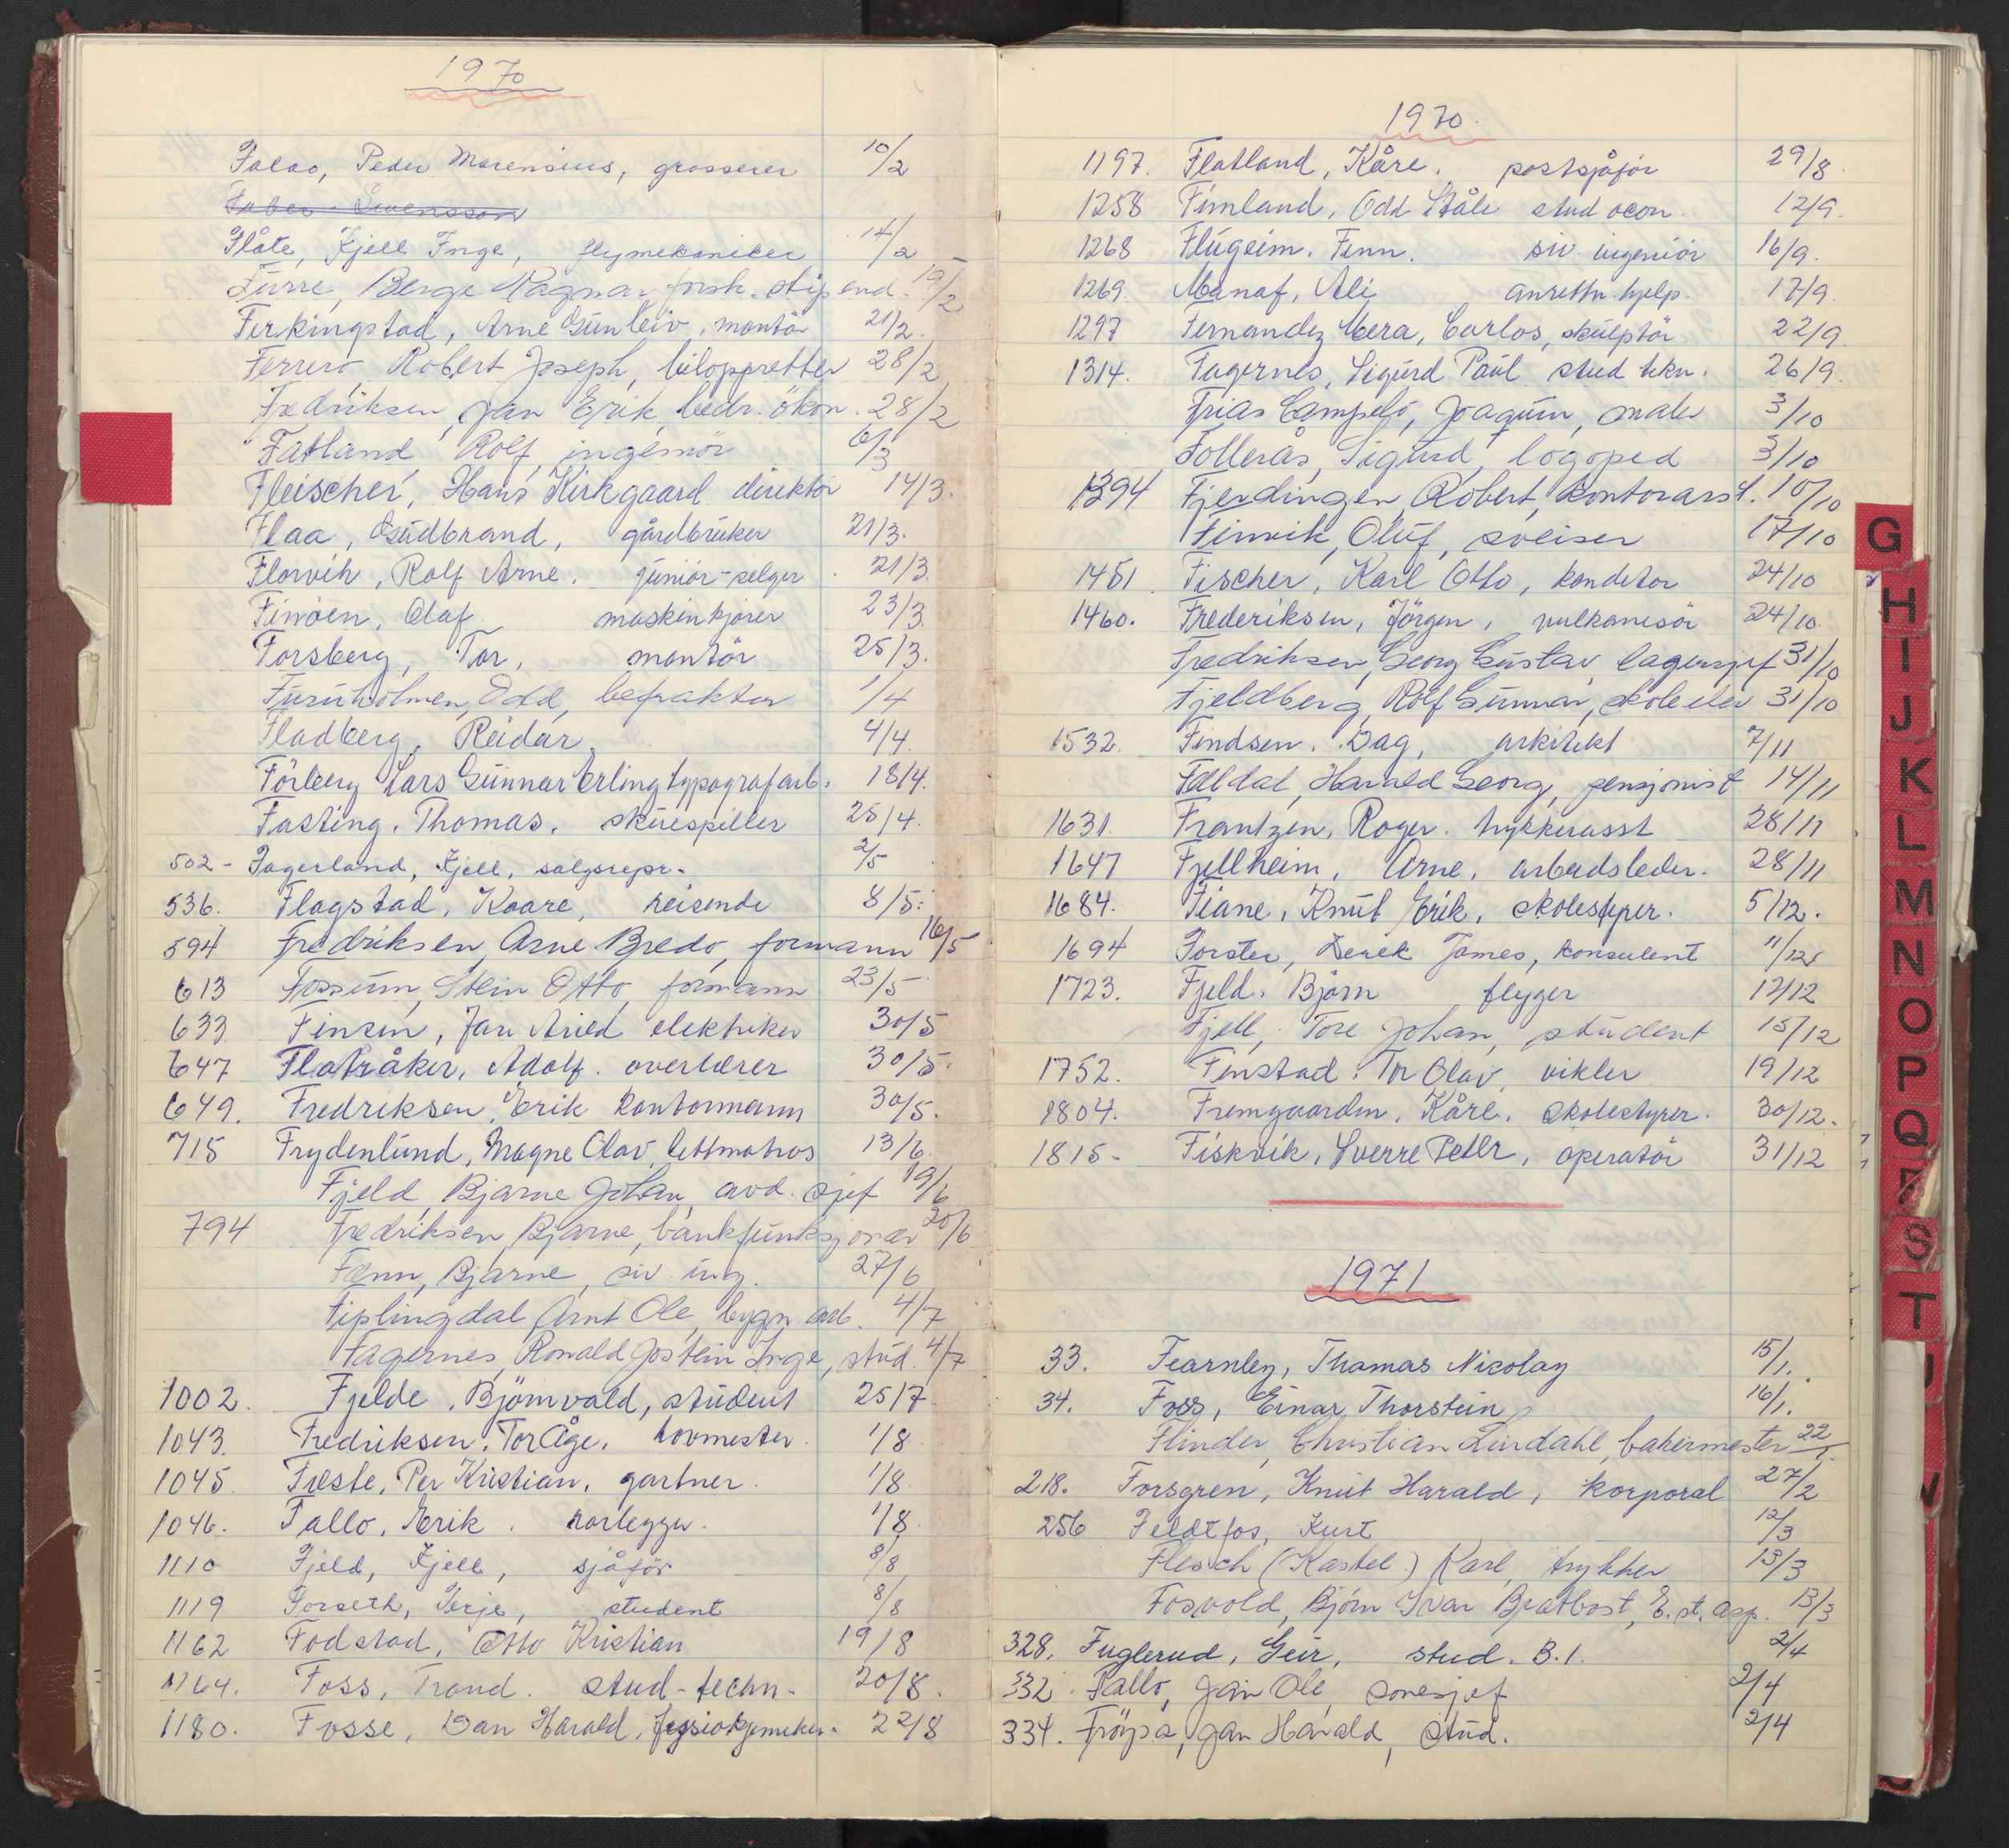 1970
Falao, Peder Marensius, grosserer 10/2
Faber-Svensson
Flåte, Kjell Inge, flymekaniker 14/2
Furre, Berge Ragnar forsk. stipend. 19/2
Ferkingstad, Arne Gunleiv, montör 21/2
Ferrero Robert Joseph, biloppretter 28/2
Fredriksen, Jan Erik, bedr. ökon. 28/2
Fatland Rolf, ingeniör 6/3
Fleischer, Hans Kirkgaard direktör 14/3.
Flaa, Gudbrand, gårdbruker 21/3.
Florvik, Rolf Arne, junior-selger 21/3.
Finnöen, Olaf maskinkjörer 23/3.
Forsberg, Tor, montör 25/3.
Furuholmen, Odd, befrakter 1/4
Fladberg, Reidar 4/4.
Förberg Lars Gunnar Erling typografarb. 18/4.
Fasting, Thomas, skuespiller 25/4.
502 - Fagerland, Kjell, salgsrepr. 2/5
536. Flagstad, Kaare, reisende 8/5.
594 Fredriksen, Arne Bredo, formann 16/5
613 Fossum, Stein Otto, formann 23/5
633 Finsen, Jan Arild elektriker 30/5
647 Flatråker, Adolf. overlærer 30/5.
649. Fredriksen, Erik kontormann 30/5.
715 Frydenlund, Magne Olav, lettmatros 13/6.
Fjeld, Bjarne Johan, avd. sjef 19/6
794 Fredriksen, Bjarne, bankfunksjonær 20/6
Fenn, Bjarne, siv. ing. 27/6
Fiplingdal, Arnt Ole, bygn. arb. 4/7
Fagernes, Ronald Jostein Inge, stud. 4/7
1002. Fjelde, Björnvald, student 25/7
1043. Fredriksen, Tor Åge, hovmester 1/8
1045. Freste, Per Kristian, gartner. 1/8
1046. Fallo, Erik. rörlegger. 1/8
1110 Fjeld, Kjell, sjåför 8/8
1119 Forseth, Terje, student 8/8
1162 Fodstad, Otto Kristian 19/8
1164. Foss, Trond. stud-techn- 20/8.
1180. Fosse, Dan Harald, fysiokjemiker. 22/8
1970.
1197. Flatland, Kåre. postsjåför 29/8
1258 Fimland, Odd Ståle stud oecon. 12/9.
1268 Flugeim, Finn. siv. ingeniör 16/9.
1269. Manaf, Ali anrettn hjelp. 17/9.
1297 Fernandez Mera, Carlos, skulptör 22/9
1314. Fagernes, Sigurd Paul stud tekn. 26/9
Frias Campelo, Joaquin, maler 3/10
Follerås, Sigurd, logoped 3/10
1394 Fjerdingen, Robert, kontorasst. 10/10
Finvik, Oluf, sveiser 17/10
1451. Fischer, Karl Otto, konditor 24/10
1460. Frederiksen, Jörgen, vulkanisör 24/10
Fredriksen, Georg Gustav, lagersjef 31/10
Fjeldberg, Rolf Gunnar, skoleelev 31/10
1532. Findsen, Dag, arkitekt 7/11
Fæddal, Harald Georg, pensjonist 14/11
1631. Frantzen, Roger. trykkerasst 28/11
1647 Fjellheim, Arne, arbeidsleder. 28/11
1684. Fiane, Knut Erik, skolestyrer. 5/12.
1694 Forster, Derek James, konsulent 11/12
1723. Fjeld, Björn flyger 12/12
Fjell, Tore Johan, student 15/12
1752. Finstad, Tor Olav, vikler 19/12
1804. Fremgaarden, Kåre. skolestyrer. 30/12.
1815 - Fiskvik, Sverre Peter, operatör 31/12
1971
33. Fearnley, Thomas Nicolay 15/1.
34. Foss, Einar Thorstein 16/1.
Flinder, Christian Lindahl, bakermester 22/1
218. Forsgren, Knut Harald, korporal 27/2
256 Feldtfos, Kurt 12/3
Flesch (Kastel) Karl, trykker 13/3
Fosvold, Bjørn Ivar Bratbost, E. st. asp. 13/3
328. Fuglerud, Geir, stud. B.I. 2/4
332. Fallo, Jan Ole, sonesjef 2/4
334. Fröysa, Jan Harald, stud. 2/4
G
H
I
J
K
L
M
N
O
P
Q
R
S
T